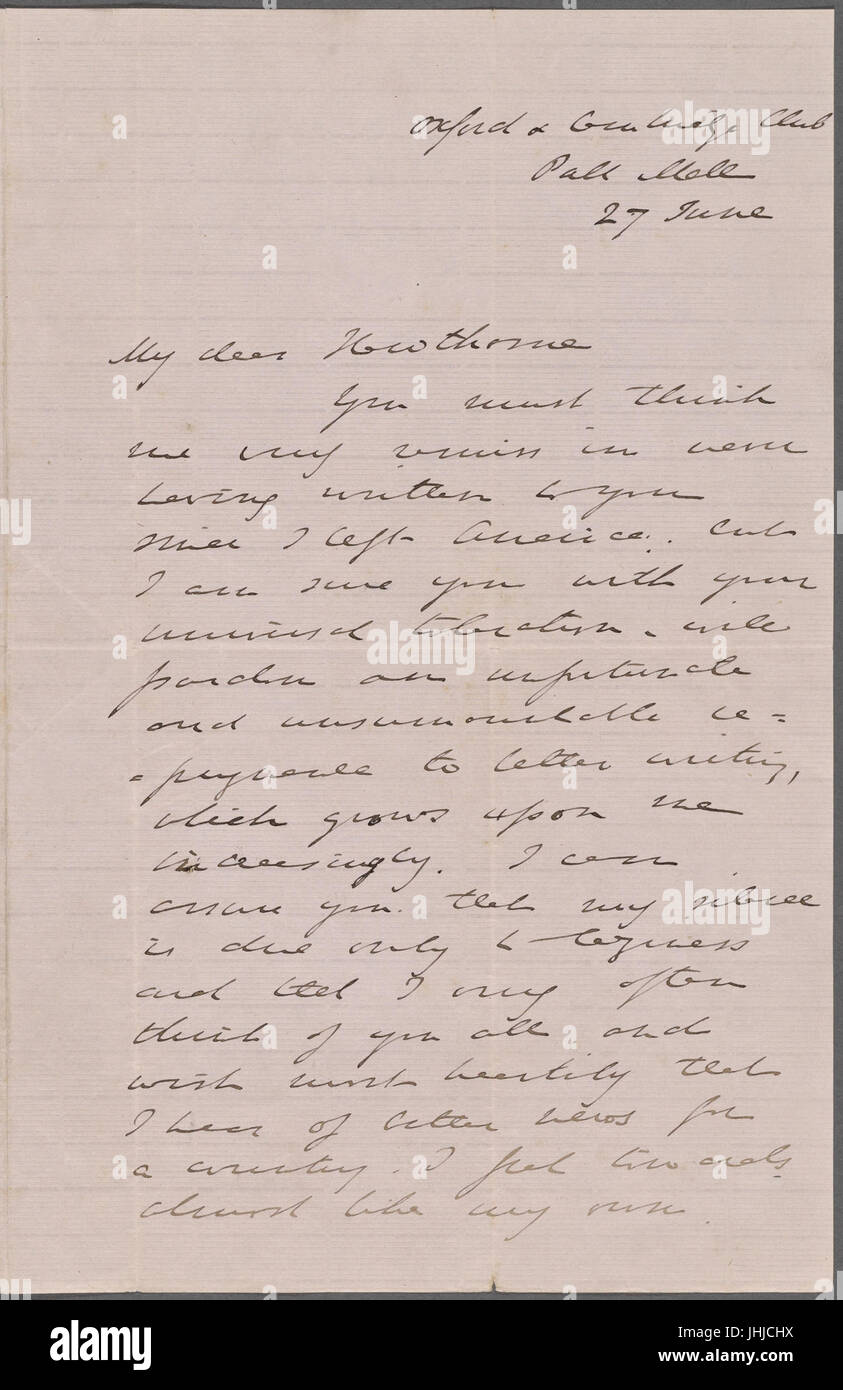 Oxford & Cambridge Club
Pall Mall
27 June
My dear Hawthorne
You must think
me very remiss in never
having written to you
since I left America. but
I am sure you with your
universal toleration - will
pardon an unfortunate
and unsurmountable re=
=pugnance to letter writing,
which grows upon me
increasingly. I can
assure you that my silence
is due only to laziness
and that I very often
think of you all and
wish most heartily that
I hear of better news for
a country. I feel towards
almost like my own.
alamy
alamy stock photo
JHJCHX
www.alamy.com